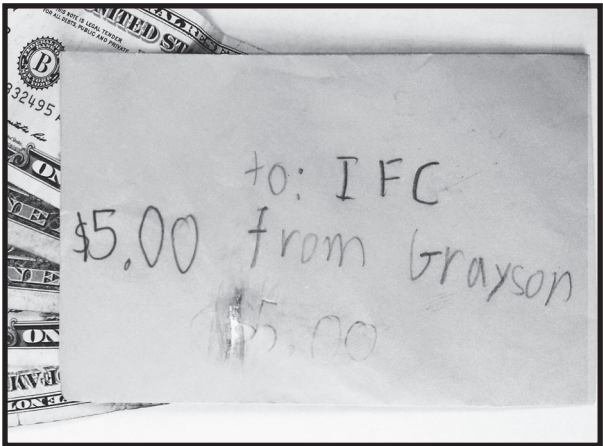 THIS NOTE IS LEGAL TENDER
FOR ALL DEBTS, PUBLIC AND PRIVATE
UNITED ST
B
832495
ON
to: IFC
$5.00 from Grayson
$5.00
ON